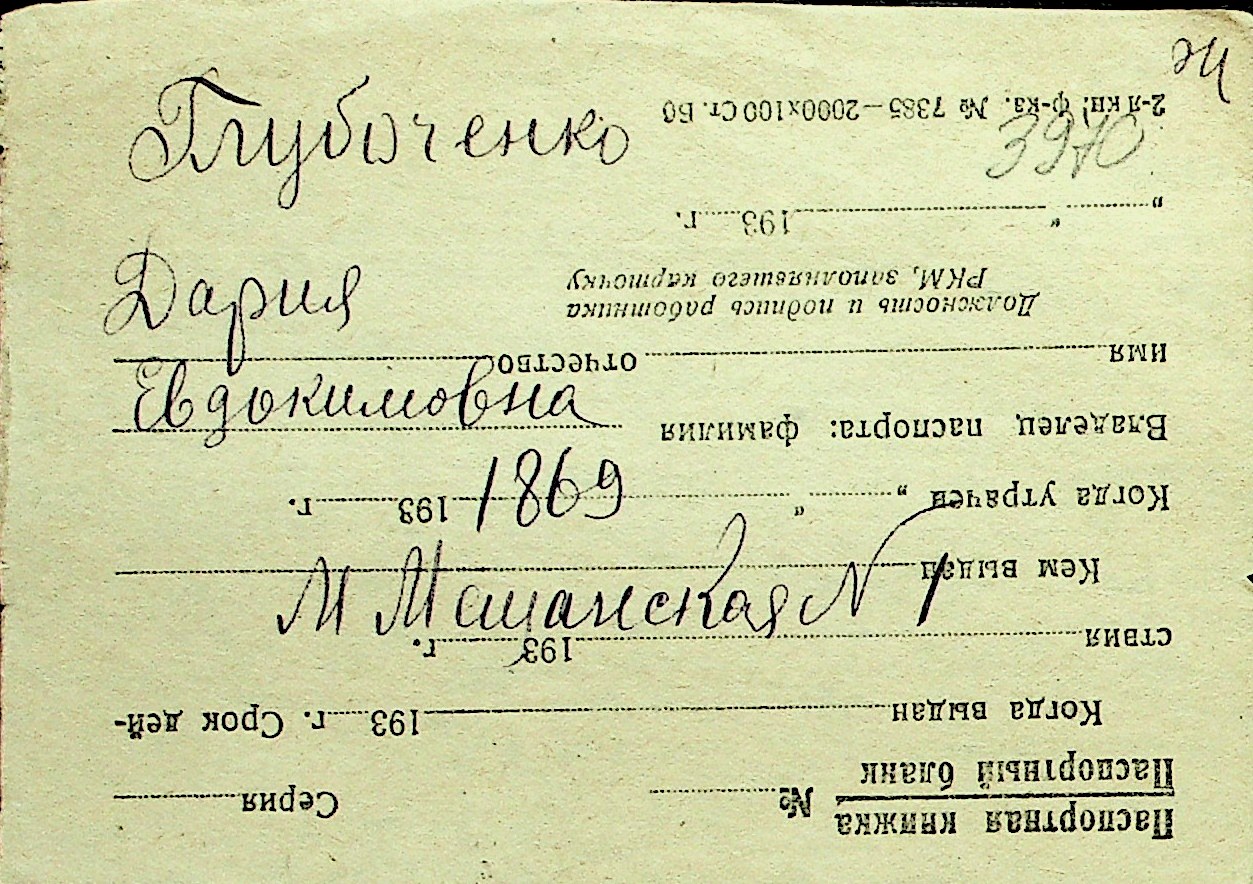 Глубоченко
3970
Дария
Евдокимовна
1869
М Мещанская N 1
Паспортная книжка
Паспортный бланк № Серия
Когда выдан 193 г. Срок дей-
ствия 193 г.
Кем выдан
Когда утрачен „ “ 193 г.
Владелец паспорта: фамилия
имя отчество
Должность и подпись работника
РКМ, заполнявшего карточку
„ “ 193 г.
2-я кн! ф-ка. № 7385—2000х100 Ст. Б0